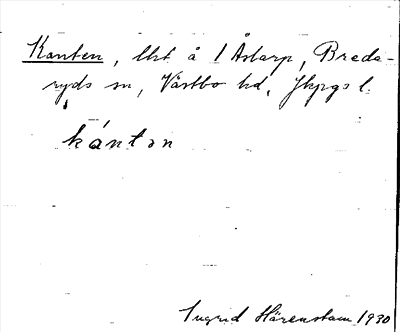 Kanten, lht å 1 Åstarp, Breda-
ryds sn, Västbo hd, Jkpgs l.
kántən
Ingrid Härenstam 1930